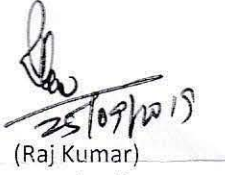 25/09/2019
(Raj Kumar)